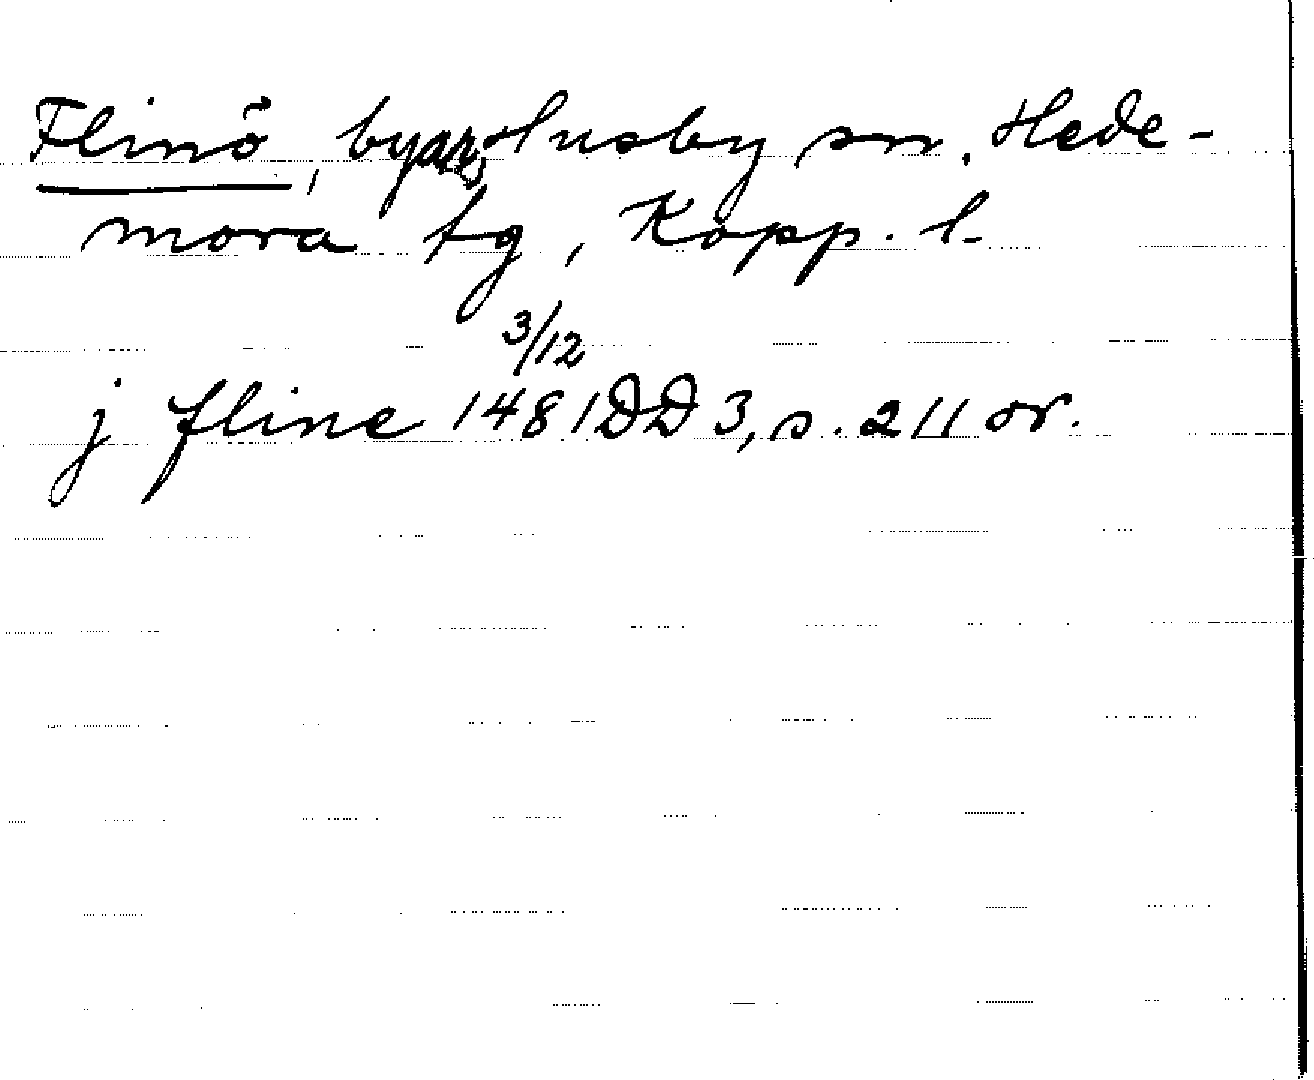 Flinö, byar, Husby sn. Hede-
mora tg, Kopp. l.
3/12
j fline 1481 DD 3, s. 211 or.